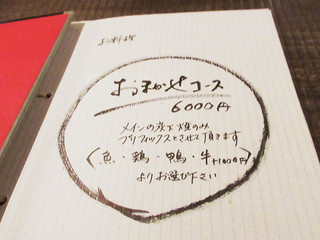 お料理
おまかせコース
6000円
メインの炭火焼のみ
プリフィックスとさせて頂きます
〈魚・鶏・鴨・牛+1000円〉
よりお選び下さい